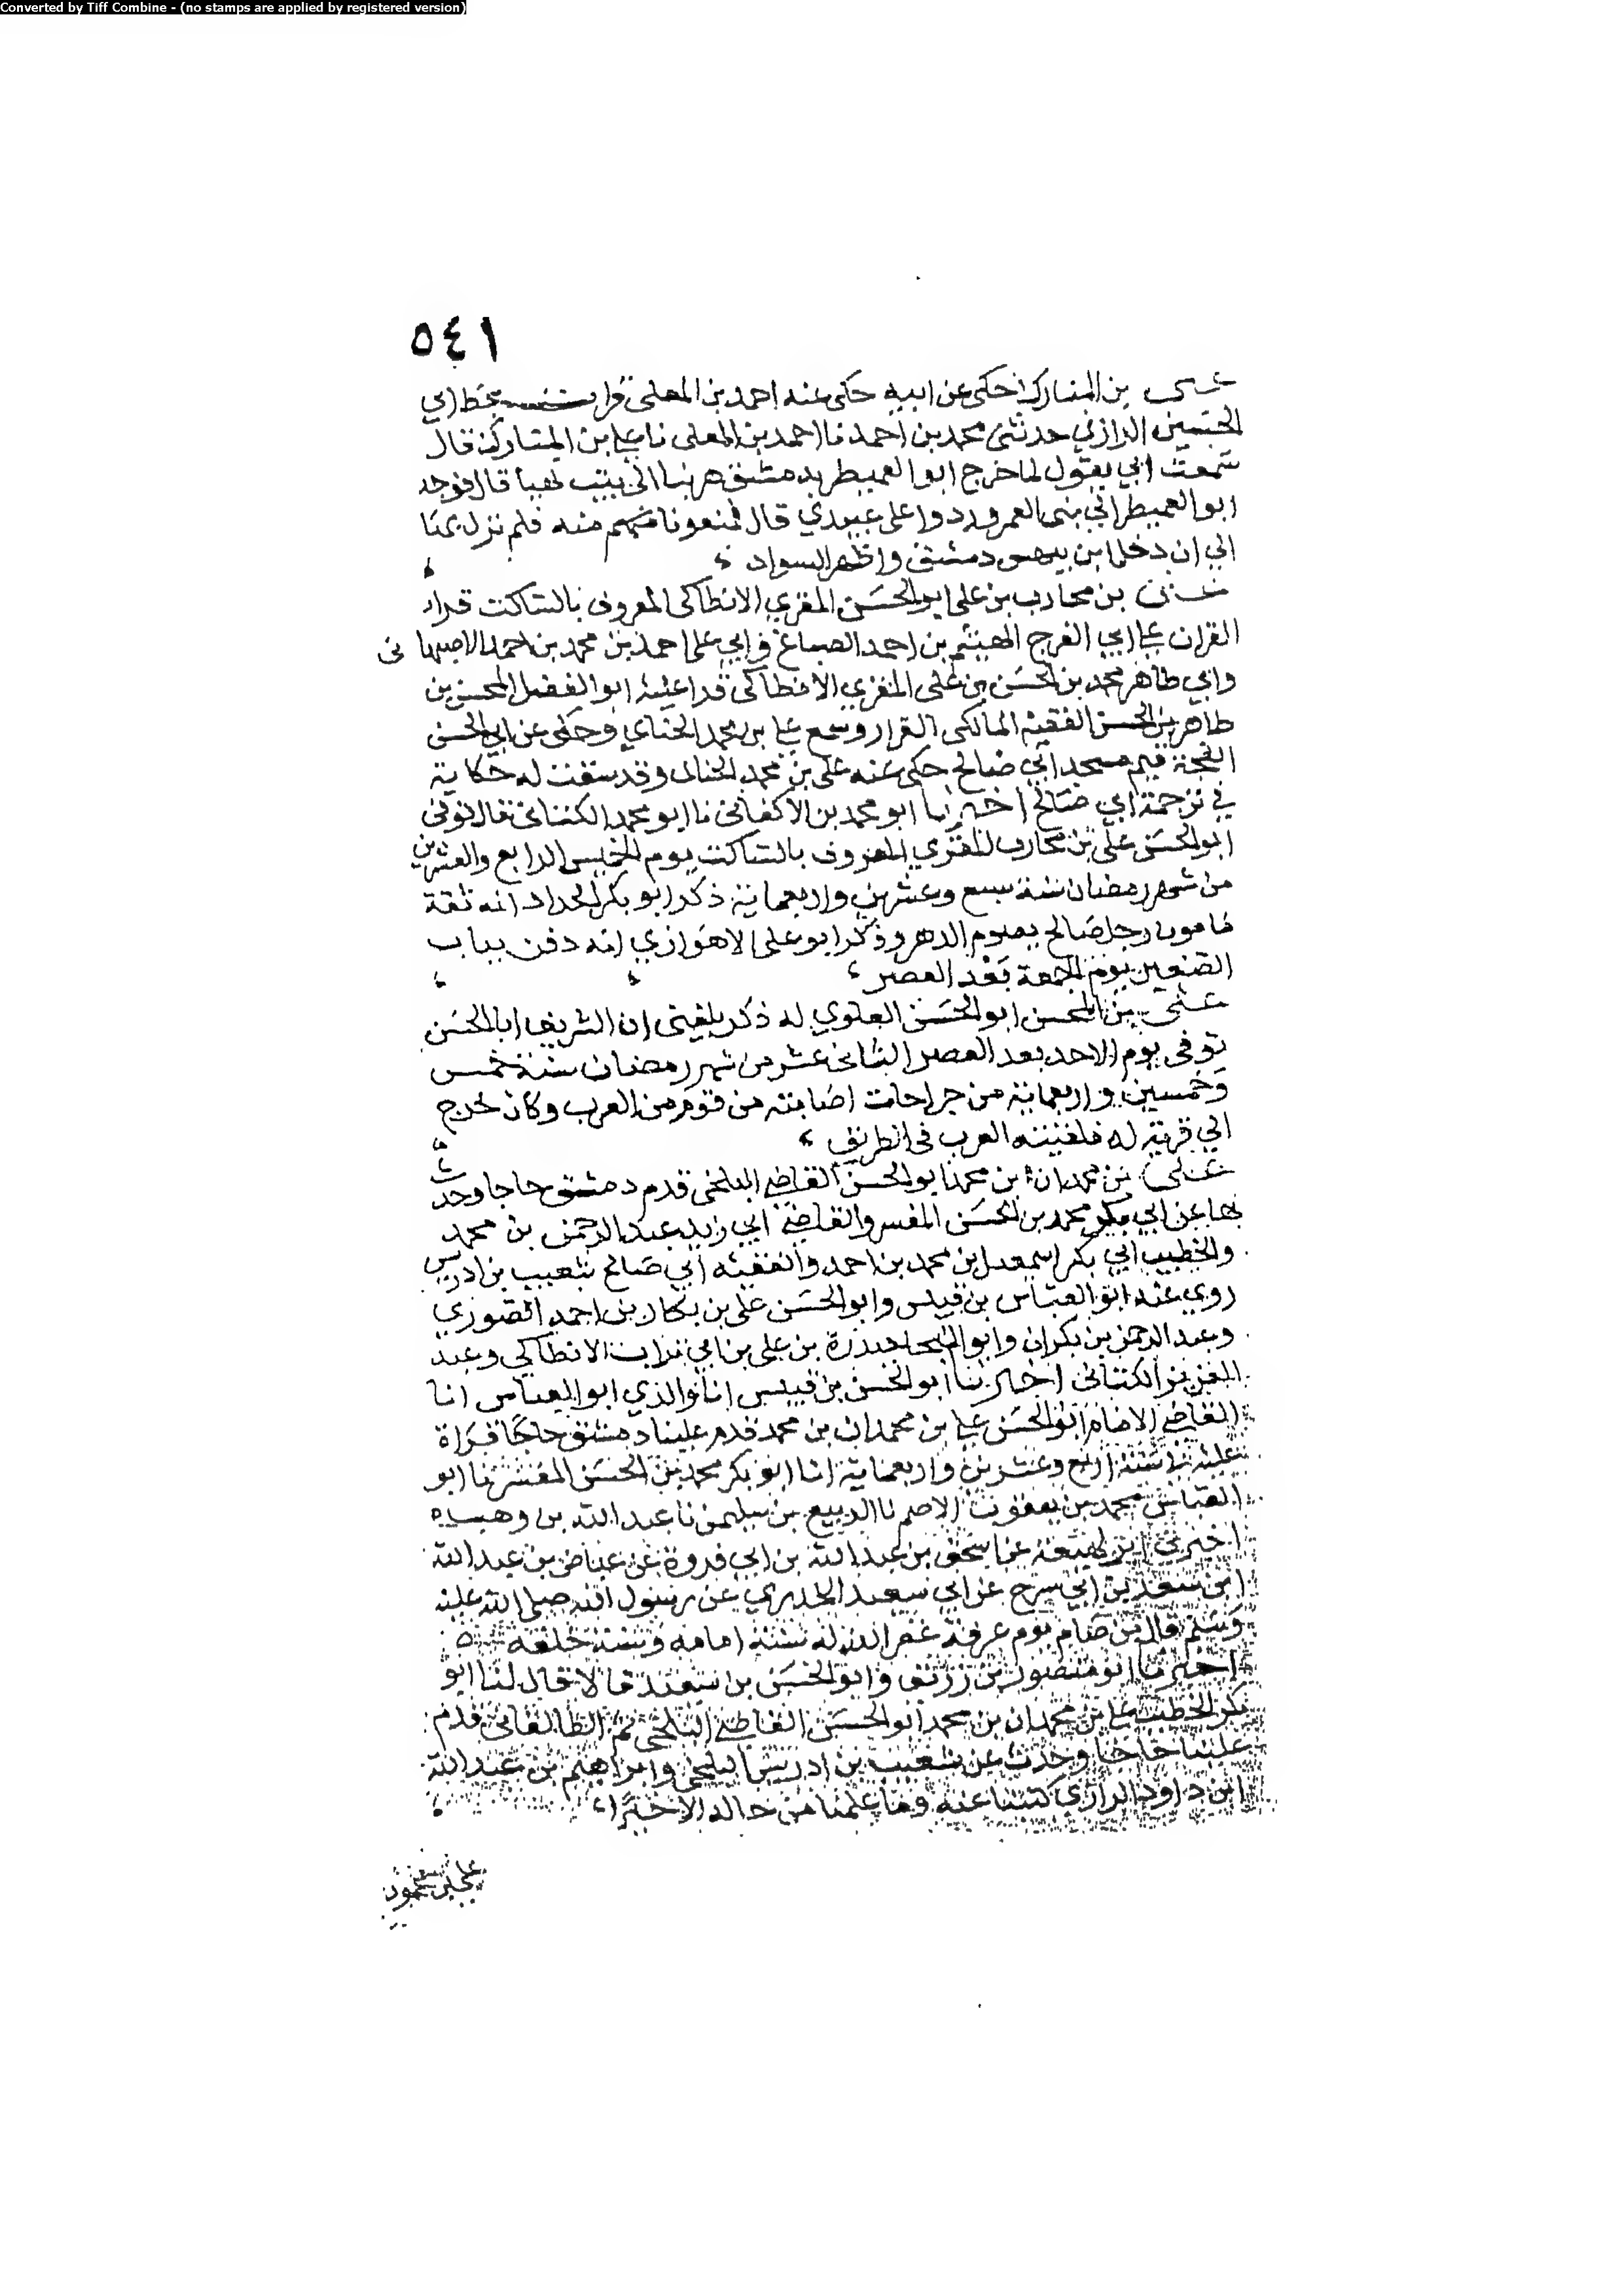 Converted by Tiff Combine - (no stamps are applied by registered version)
٥٤١
علي بن المبارك حكى عن ابيه حكى عنه احمد بن المعلى قرات بخط ابي
الحسين الرازي حدثني محمد بن احمد نا احمد بن المعلى نا علي بن المبارك قال
سمعت ابي يقول لما خرج ابو العميطر بدمشق هربنا الى بيت لهيا قال فوجه
ابو العميطر الي بني العمر وردوا علي عبيدي قال فمنعونا منهم فلم نزل
الي ان دخل ابن بيهس دمشق واظهر السواد
علي بن محارب بن علي ابو الحسن المقري الانطاكي المعروف بالساكت قرا
القران علي ابي الفرج الهيثم بن احمد الصباغ وابي علي احمد بن محمد بن احمد الاصبهاني
وابي طاهر محمد بن الحسن بن علي المقري الانطاكي قرا عليه ابو الفضل المحسن بن
طاهر بن الحسن الفقيه المالكي القرار وسمع علي بن محمد الحناي وحكى عن ابي الحسن
قيم مسجد ابي صالح حكى عنه علي بن محمد الحناي وقد سقت له حكاية
في ترجمة ابي صالح اخبرنا ابو محمد بن الاكفاني نا ابو محمد الكتاني قال توفي
ابو الحسن علي بن محارب المقري المعروف بالساكت يوم الخميس الرابع والعشرين
من شهر رمضان سنة سبع وعشرين واربعماية ذكر ابو بكر الحداد انه ثقة
مامون رجل صالح يصوم الدهر وذكر ابو علي الاهوازي انه دفن بباب
الصغير يوم الجمعة بعد العصر
علي بن المحسن ابو الحسن العلوي له ذكر بلغني ان الشريف ابا الحسن
توفي يوم الاحد بعد العصر الثاني عشر من شهر رمضان سنة خمس
وخمسين واربعماية من جراحات اصابته من قوم من العرب وكان خرج
الي قرية له فلقيته العرب في الطريق
علي بن محمدان بن محمد ابو الحسن القاضي البلخي قدم دمشق حاجا وحدث
بها عن ابي بكر محمد بن الحسن المفسر والقاضي ابي زيد عبد الرحمن بن محمد
والخطيب ابي بكر اسمعيل بن محمد بن احمد والفقيه ابي صالح شعيب بن ادريس
روي عنه ابو العباس بن قبيس وابو الحسن علي بن بكار بن احمد الصوري
وعبد الرحمن بن بكران وابو النجا حيدرة بن علي بن ابي تراب الانطاكي وعبد
العزيز الكتاني اخبرنا ابو الحسن بن قبيس انا والدي ابو العباس انا
القاضي الامام ابو الحسن علي بن محمدان بن محمد قدم علينا دمشق حاجا قراة
عليه في سنة اربع وعشرين واربعماية انا ابو بكر محمد بن الحسن المفسر نا ابو
العباس محمد بن يعقوب الاصم نا الربيع بن سليمن نا عبد الله بن وهب
اخبرني ابن لهيعة عن اسحق بن عبد الله بن ابي فروة عن عياض بن عبد الله
ابن سعد بن ابي سرح عن ابي سعيد الخدري عن رسول الله صلى الله عليه
وسلم قال من صام يوم عرفة غفر الله له سنة امامه وسنة خلفه
اخبرنا ابو منصور بن زريق وابو الحسن بن سعيد قالا قال لنا ابو
بكر الخطيب علي بن محمدان بن محمد ابو الحسن القاضي البلخي ثم الطالقاني قدم
علينا حاجا وحدث عن شعيب بن ادريس البلخي وابراهيم بن عبد الله
ابن داود الرازي كتبنا عنه وما علمنا من حاله الا خيرا
علي بن محمود